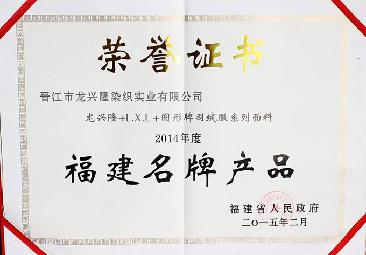 荣誉证书
晋江市龙兴隆染织实业有限公司
龙兴隆+L.X.L+图形牌羽绒服系列面料
2014年度
福建名牌产品
福建省人民政府
二〇一五年二月